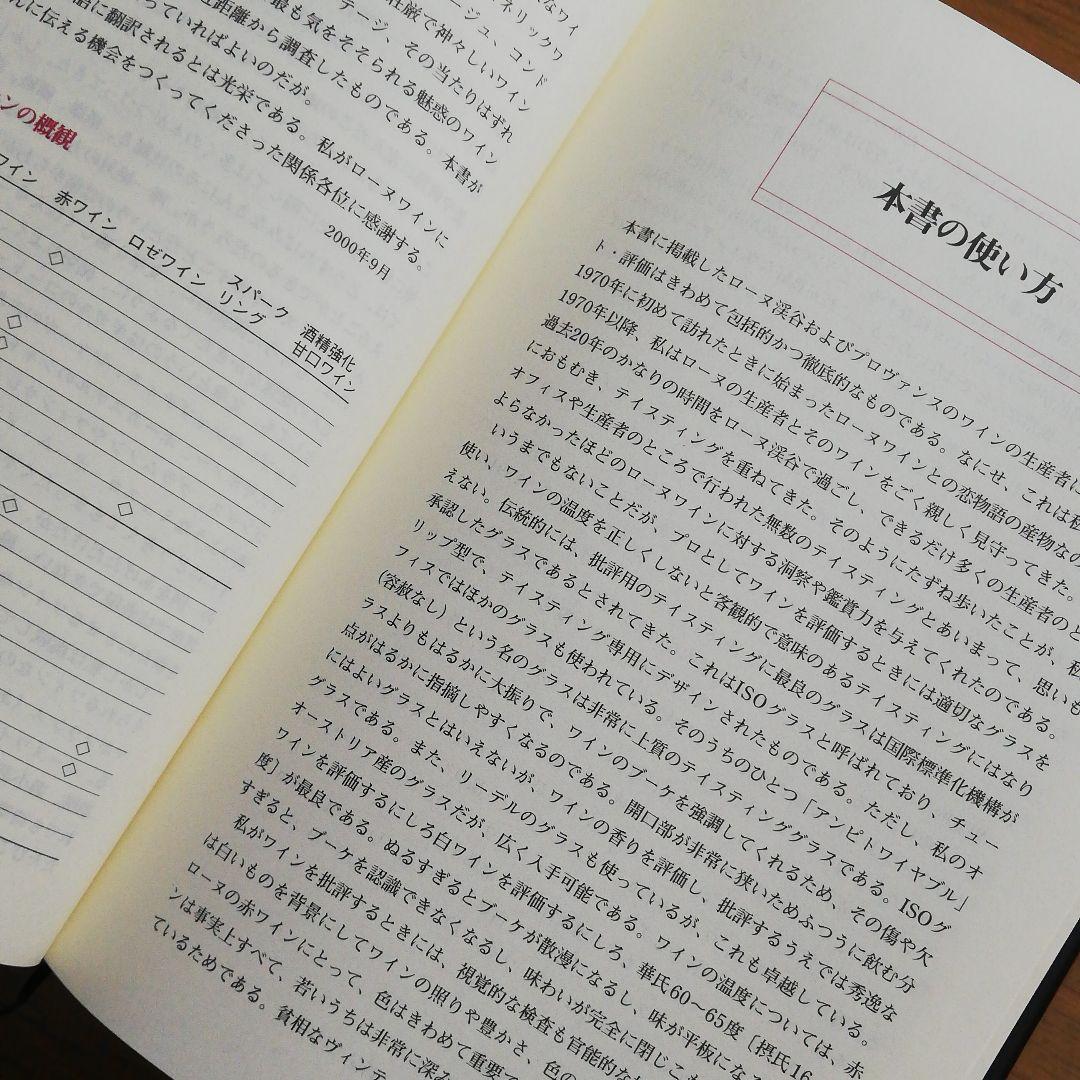 なワイ
ネリックワ
荘厳で神々しいワイン
ージュ、コンド
最も気をそそられる魅惑のワイン
テージ、その当たりはずれ
近距離から調査したものである。本書が
っていればよいのだが。
語に翻訳されるとは光栄である。私がローヌワインに
んに伝える機会をつくってくださった関係各位に感謝する。
2000年9月
ンの概観
ワイン 赤ワイン ロゼワイン スパークリング 酒精強化甘口ワイン
本書の使い方
本書に掲載したローヌ渓谷およびプロヴァンスのワインの生産者に
ト・評価はきわめて包括的かつ徹底的なものである。なにせ、これは私
1970年に初めて訪れたときに始まったローヌワインとの恋物語の産物なの
1970年以降、私はローヌの生産者とそのワインをごく親しく見守ってきた。
過去20年のかなりの時間をローヌ渓谷で過ごし、できるだけ多くの生産者のと
におもむき、テイスティングを重ねてきた。そのようにたずね歩いたことが、私
オフィスや生産者のところで行われた無数のテイスティングとあいまって、思いも
よらなかったほどのローヌワインに対する洞察や鑑賞力を与えてくれたのである。
いうまでもないことだが、プロとしてワインを評価するときには適切なグラスを
使い、ワインの温度を正しくしないと客観的で意味のあるテイスティングにはなり
えない。伝統的には、批評用のテイスティングに最良のグラスは国際標準化機構が
承認したグラスであるとされてきた。これはISOグラスと呼ばれており、チュー
リップ型で、テイスティング専用にデザインされたものである。ただし、私のオ
フィスではほかのグラスも使われている。そのうちのひとつ「アンピトワイヤブル」
(容赦なし)という名のグラスは非常に上質のテイスティンググラスである。ISOグ
ラスよりもはるかに大振りで、ワインのブーケを強調してくれるため、その傷や欠
点がはるかに指摘しやすくなるのである。開口部が非常に狭いためふつうに飲む分
にはよいグラスとはいえないが、ワインの香りを評価し、批評するうえでは秀逸な
グラスである。また、リーデルのグラスも使っているが、これも卓越している。
オーストリア産のグラスだが、広く入手可能である。ワインの温度については、赤
ワインを評価するにしろ白ワインを評価するにしろ、華氏60〜65度〔摂氏16
度〕が最良である。ぬるすぎるとブーケが散漫になるし、味が平板になる
すぎると、ブーケを認識できなくなるし、味わいが完全に閉じこも
私がワインを批評するときには、視覚的な検査も官能的な
は白いものを背景にしてワインの照りや豊かさ、色の
ローヌの赤ワインにとって、色はきわめて重要で
ンは事実上すべて、若いうちは非常に深み
ているためである。貧相なヴィンテ